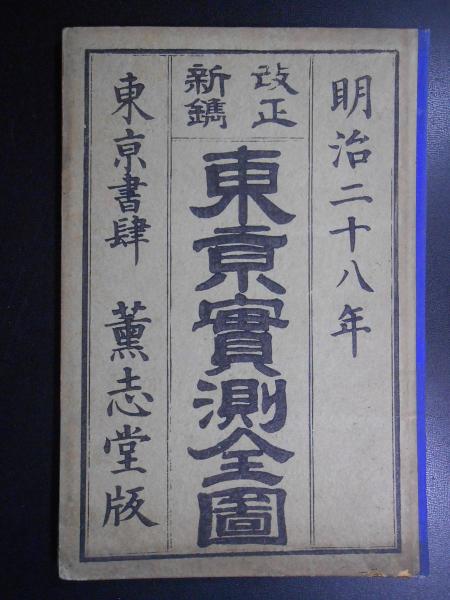 明治二十八年
改正
新鐫
東亰實測全圖
東亰書肆 薫志堂版